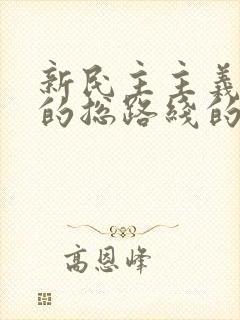 新民主主義
的总路綫的
高恩峰